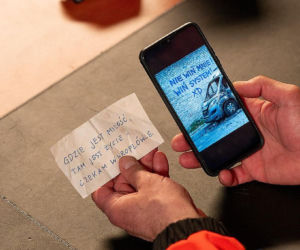 GDZIE JEST MIŁOŚĆ,
TAM JEST ŻYCIE
CZEKAM W KROPLÓWCE
NIE WIŃ MNIE
WIŃ SYSTEM
XD